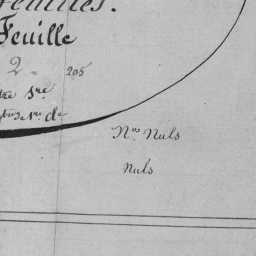 Feuilles.
Feuille
2 205
Nos Nuls
Nuls